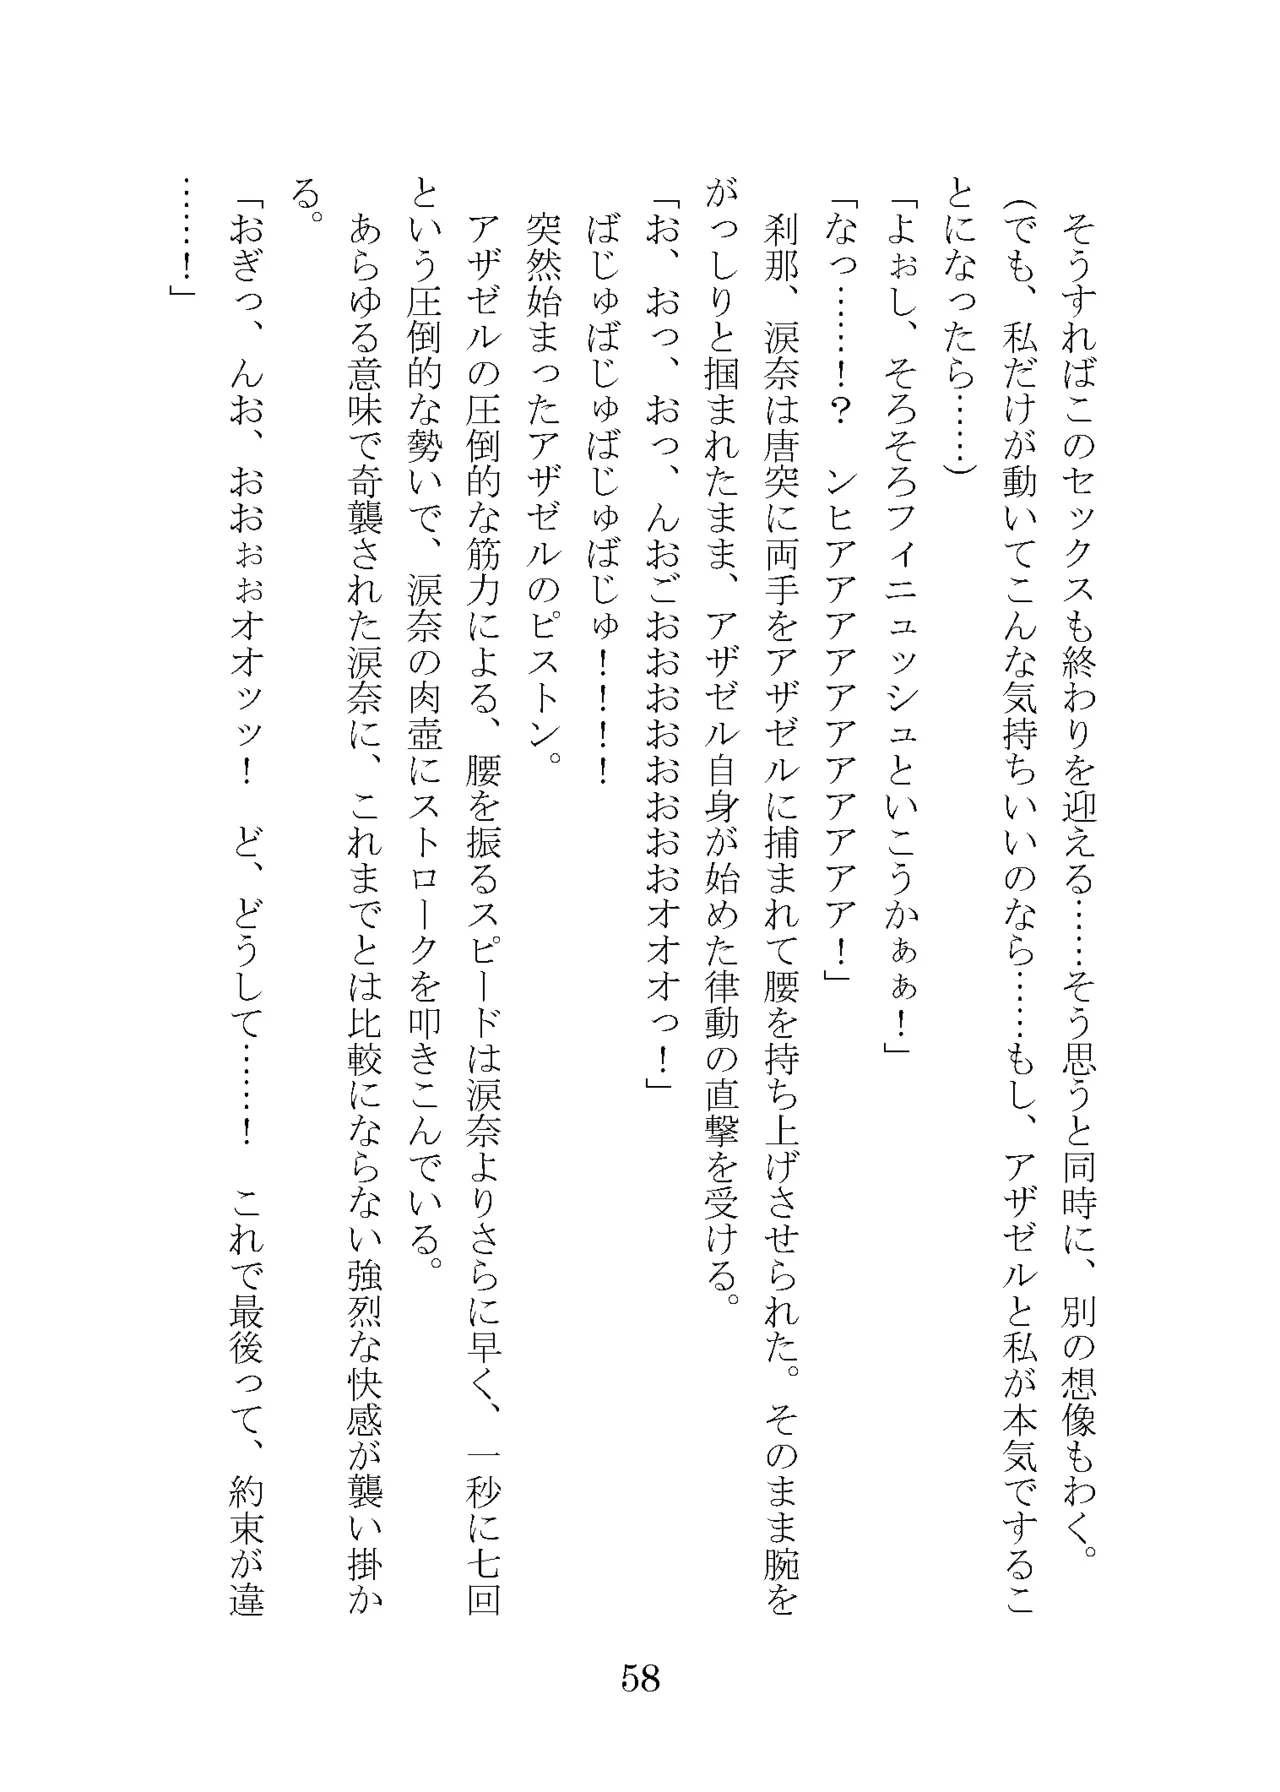 そうすればこのセックスも終わりを迎える……そう思うと同時に、別の想像もわく。
(でも、私だけが動いてこんな気持ちいいのなら……もし、アザゼルと私が本気でするこ
とになったら……)
「よぉし、そろそろフィニュッシュといこうかぁぁ！」
「なっ……！？　ンヒアアアアアアアアアアア！」
刹那、涙奈は唐突に両手をアザゼルに捕まれて腰を持ち上げさせられた。そのまま腕を
がっしりと掴まれたまま、アザゼル自身が始めた律動の直撃を受ける。
「お、おっ、おっ、んおごおおおおおおおおオオオっ！」
ばじゅばじゅばじゅばじゅ！！！！
突然始まったアザゼルのピストン。
アザゼルの圧倒的な筋力による、腰を振るスピードは涙奈よりさらに早く、一秒に七回
という圧倒的な勢いで、涙奈の肉壺にストロークを叩きこんでいる。
あらゆる意味で奇襲された涙奈に、これまでとは比較にならない強烈な快感が襲い掛か
る。
「おぎっ、んお、おおぉぉオオッッ！　ど、どうして……！　これで最後って、約束が違
……！」
58